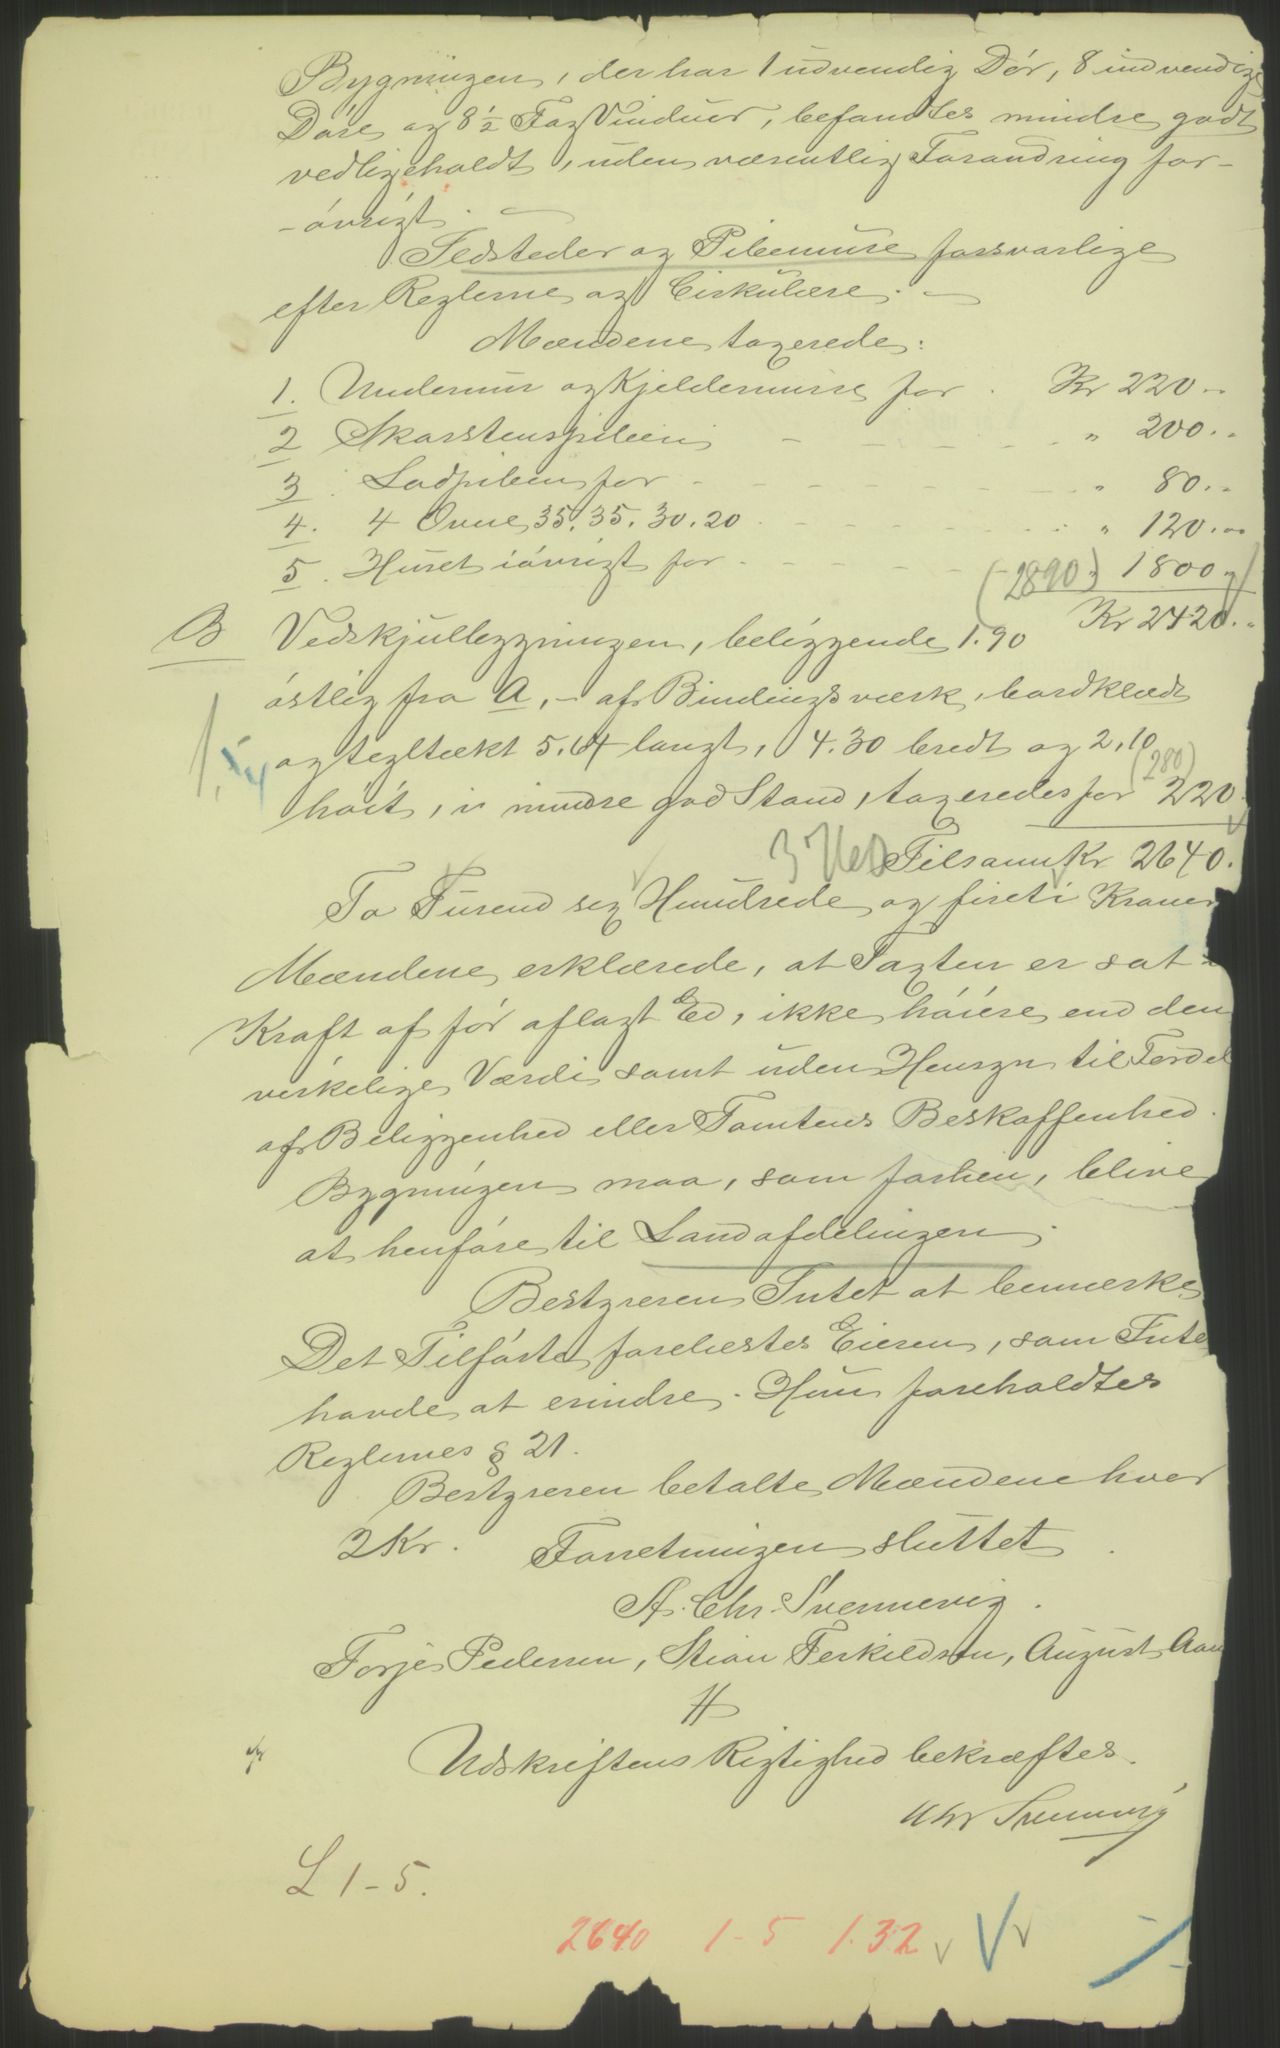 Bygningen, der har 1 udvendig Dör, 8 indvendige
Döre og 8 1/2 Fag Vinduer, befandtes mindre godt
vedligeholdt, uden væsentlig Forandring for-
-övrigt. —
Ildsteder og Pibemure forsvarlige
efter Reglerne og Cirkulære. —
Mændene taxerede:
1. Undermur og Kjeldermure for . Kr 220..
2 Skorstenspiben - - - - " 200..
3. Ladpiben for - - - - - " 80..
4. 4 Ovne 35. 35. 30. 20 - - - - " 120...
5. Huset iövrigt for - - - - (2890) 1800 "
Kr 2420..
B Vedskjulbygningen, beliggende 1.90
östlig fra A, - af Bindingsværk, bordklædt
og tegltækt 5.64 langt, 4.30 bredt og 2,10
höit, i mindre god Stand, taxeredes for (280) 220
Tilsam Kr 2640.
To Tusend sex Hundrede og fireti Kroner
Mændene erklærede, at Taxten er sat i
Kraft af för aflagt Ed, ikke höiere end den
virkelige Værdi samt uden Hensyn til Fordel
af Beliggenhed eller Tomtens Beskaffenhed.
Bygningen maa, som forhen, blive
at henföre til Landafdelingen.
Bestyreren Intet at bemærke
Det Tilförte forelæstes Eieren, som Inte
havde at erindre. Hun foreholdtes
Reglernes § 21.
Bestyreren betalte Mændene hver
2 Kr. Forretningen sluttet.
A. Chr. Svennevig.
Torje Pedersen, Stian Terkildsen, August Aan
Udskriftens Rigtighed bekræftes.
Chr Svennevig
L 1-5.
2640 1-5 1.32